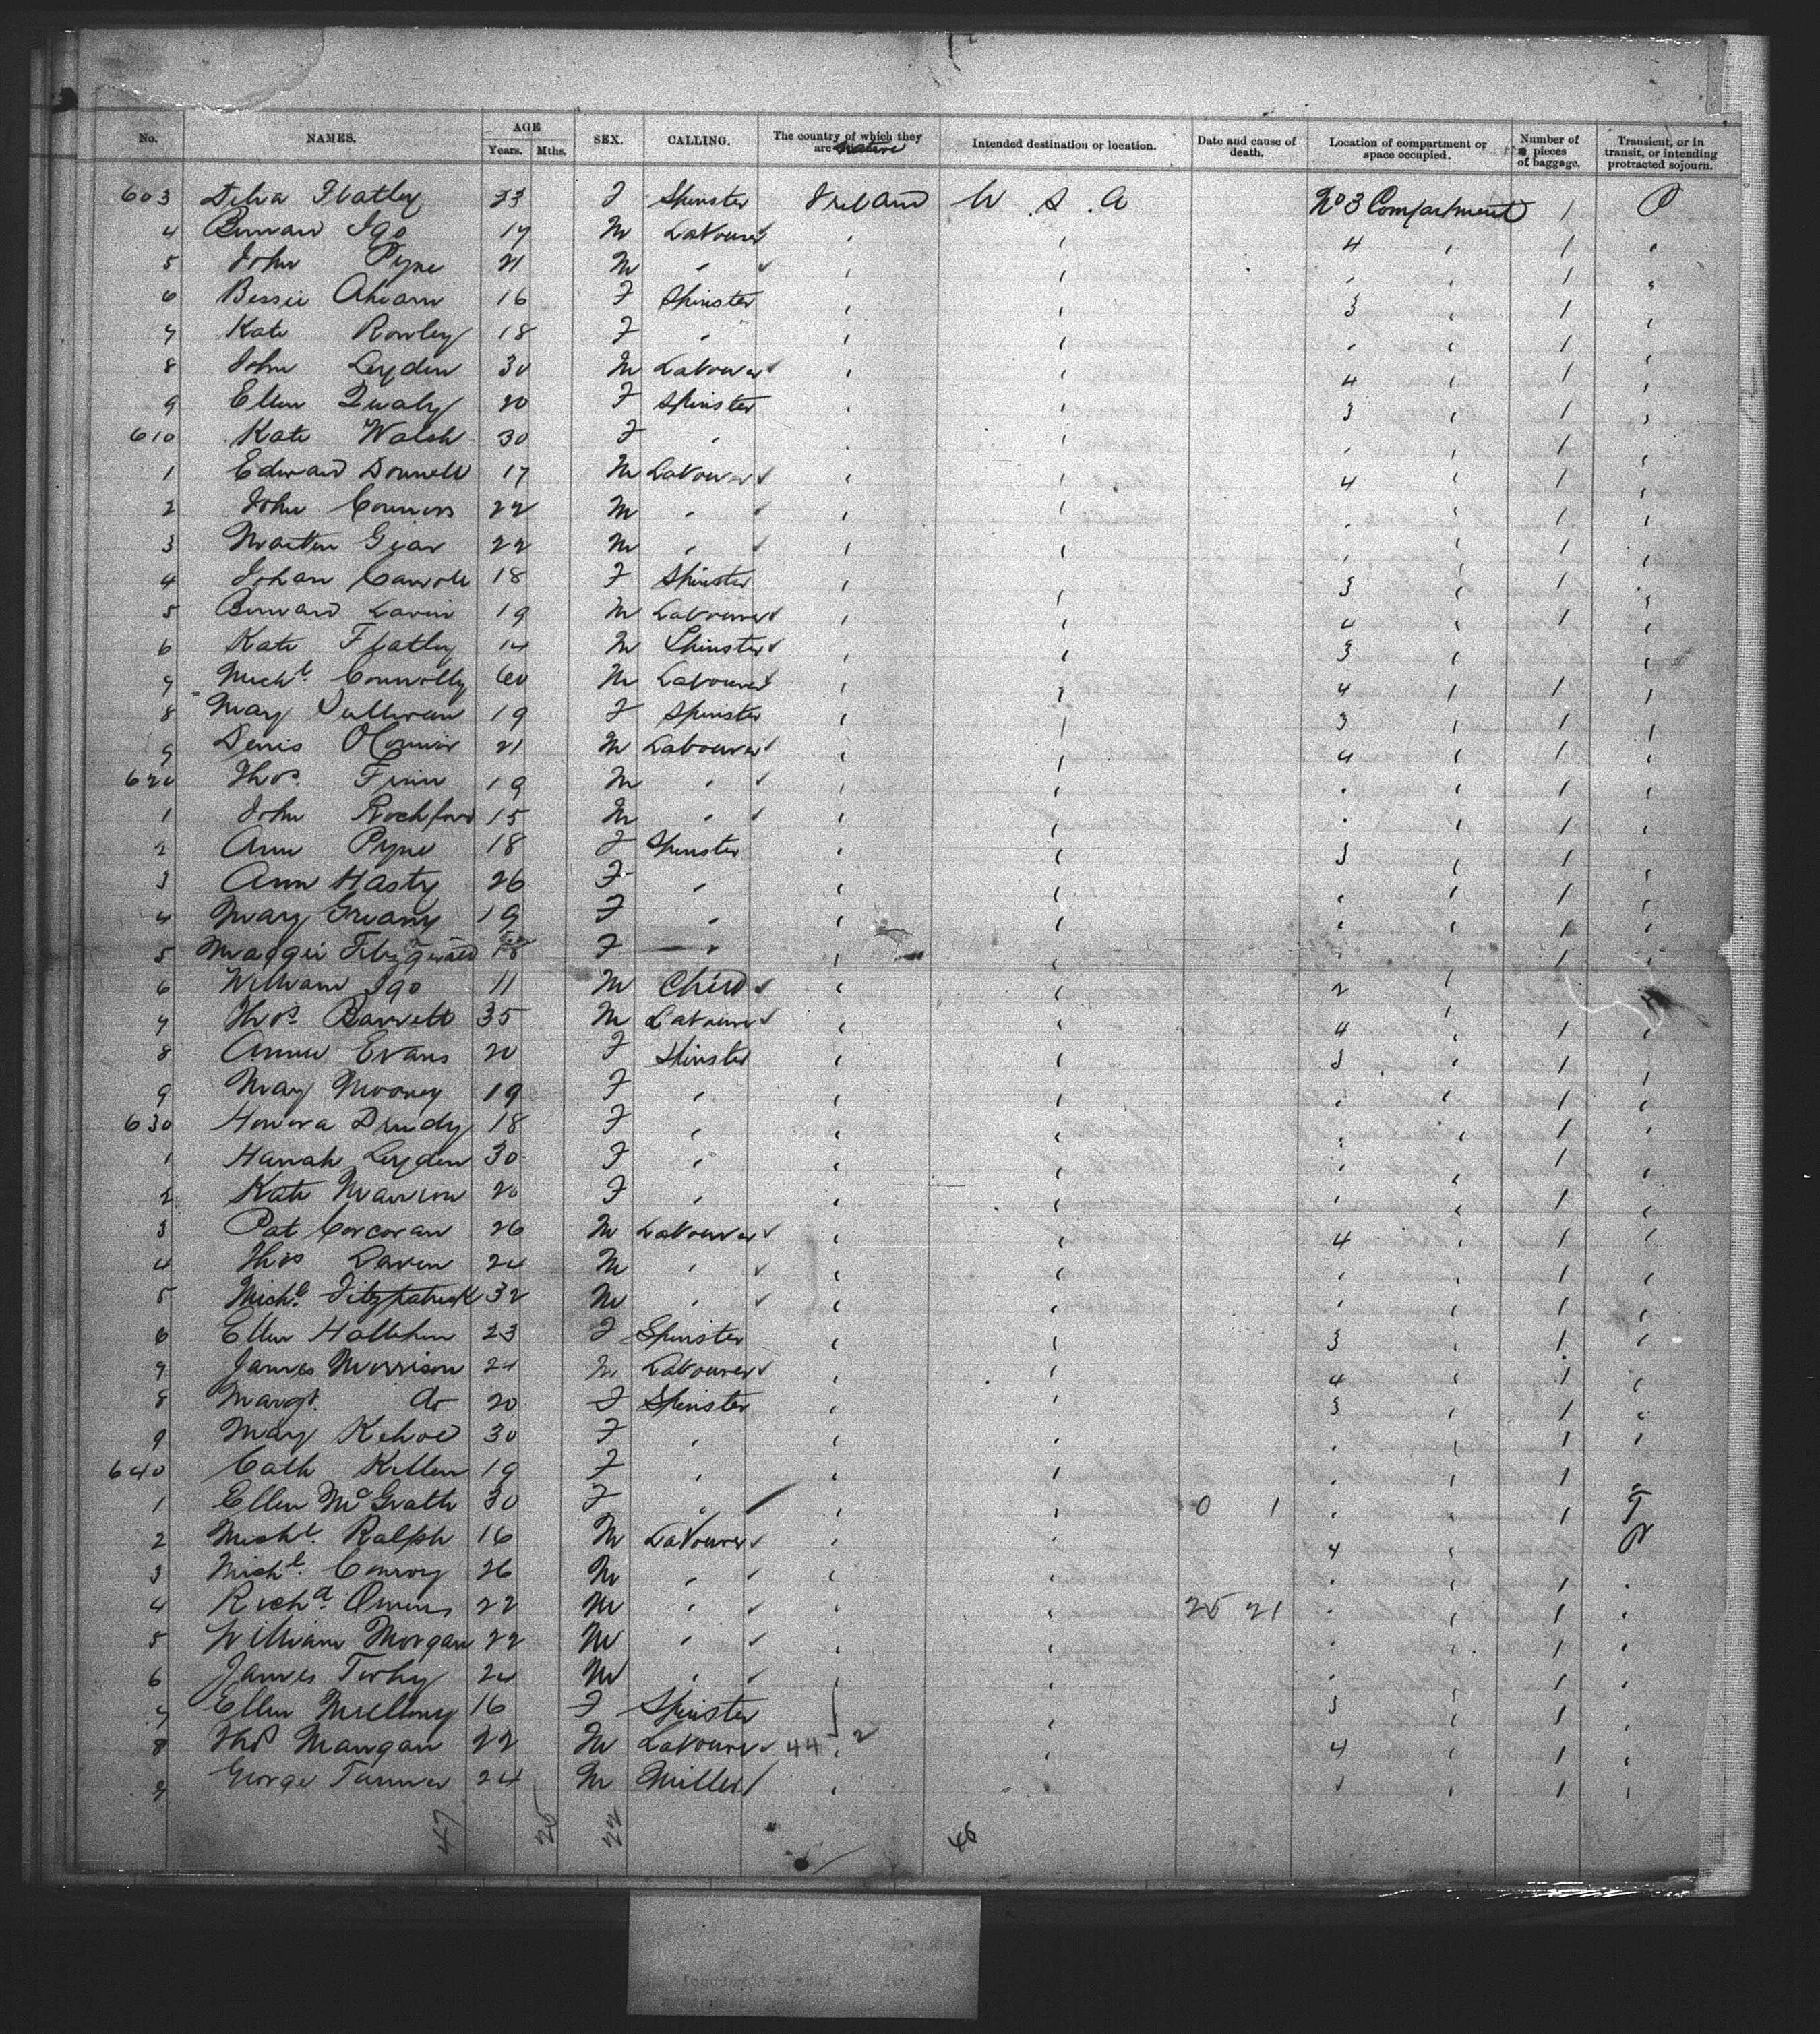 No. NAMES. AGE Years. Mths. SEX. CALLING. The country of which they are native Intended destination or location. Date and cause of death. Location of compartment or space occupied. Number of pieces of baggage. Transient, or in transit, or intending protracted sojourn.
603 Delia Flatley 23 F Spinster Ireland U.S.A No 3 Compartment 1 P
4 Bernard Igo 17 M Labourer 4 1
5 John Pyne 21 M " 1
6 Bessie Ahearn 16 F Spinster 3 1
7 Kate Rowley 18 F " 1
8 John Leyden 30 M Labourer 4 1
9 Ellen Qualy 20 F Spinster 3 1
610 Kate Walsh 30 F " 1
1 Edward Donnell 17 M Labourer 4 1
2 John Connors 22 M " 1
3 Martin Gear 22 M " 1
4 Johan Carroll 18 F Spinster 3 1
5 Bernard Lavin 19 M Labourer 4 1
6 Kate Flatley 14 M Spinster 3
7 Michl. Connolly 60 M Labourer 4 1
8 Mary Sullivan 19 F Spinster 3 1
9 Denis O'Connor 21 M Labourer 4 1
620 Thos. Finn 19 M " 1
1 John Rochford 15 M " 1
2 Ann Pyne 18 F Spinster 3 1
3 Ann Hasty 26 F " 1
4 Mary Greany 19 F " 1
5 Maggie Fitzgerald 18 F " 1
6 William Igo 11 M Child 2
7 Thos. Barrett 35 M Labourer 4 1
8 Annie Evans 20 F Spinster 3 1
9 Mary Mooney 19 F " 1
630 Honora Drudy 18 F " 1
1 Hanah Leyden 30 F " 1
2 Kate Marrion 20 F " 1
3 Pat Corcoran 26 M Labourer 4 1
4 Thos Laven 24 M " 1
5 Michl. Fitzpatrick 32 M " 1
6 Ellen Hallihan 23 F Spinster 3 1
7 James Morrison 21 M Labourer 4 1
8 Margt. do 20 F Spinster 3 1
9 Mary Kehoe 30 F " 1
640 Cath Killen 19 F " 1
1 Ellen McGrath 30 F " 0 1 1 T
2 Michl. Ralph 16 M Labourer 4 P
3 Michl. Conroy 26 M " 1
4 Richd. Owens 22 M " 25 21 1
5 William Morgan 22 M " 1
6 James 24 M " 1
7 Ellen 16 F Spinster 3 1
8 Thos Mangan 22 M Labourer 44 2 4 1
9 George Tanner 24 M Miller 1
47 25 22 46